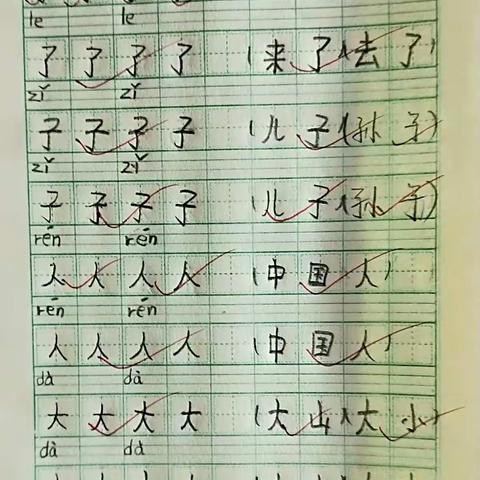 le le
了 了 了 了 (来了)(去了)
zǐ zǐ
子 子 子 子 (儿子)(孙子)
zǐ zǐ
子 子 子 子 (儿子)(孙子)
rén rén
人 人 人 人 (中国人)
rén rén
人 人 人 人 (中国人)
dà dà
大 大 大 大 (大山)(大小)
dà dà